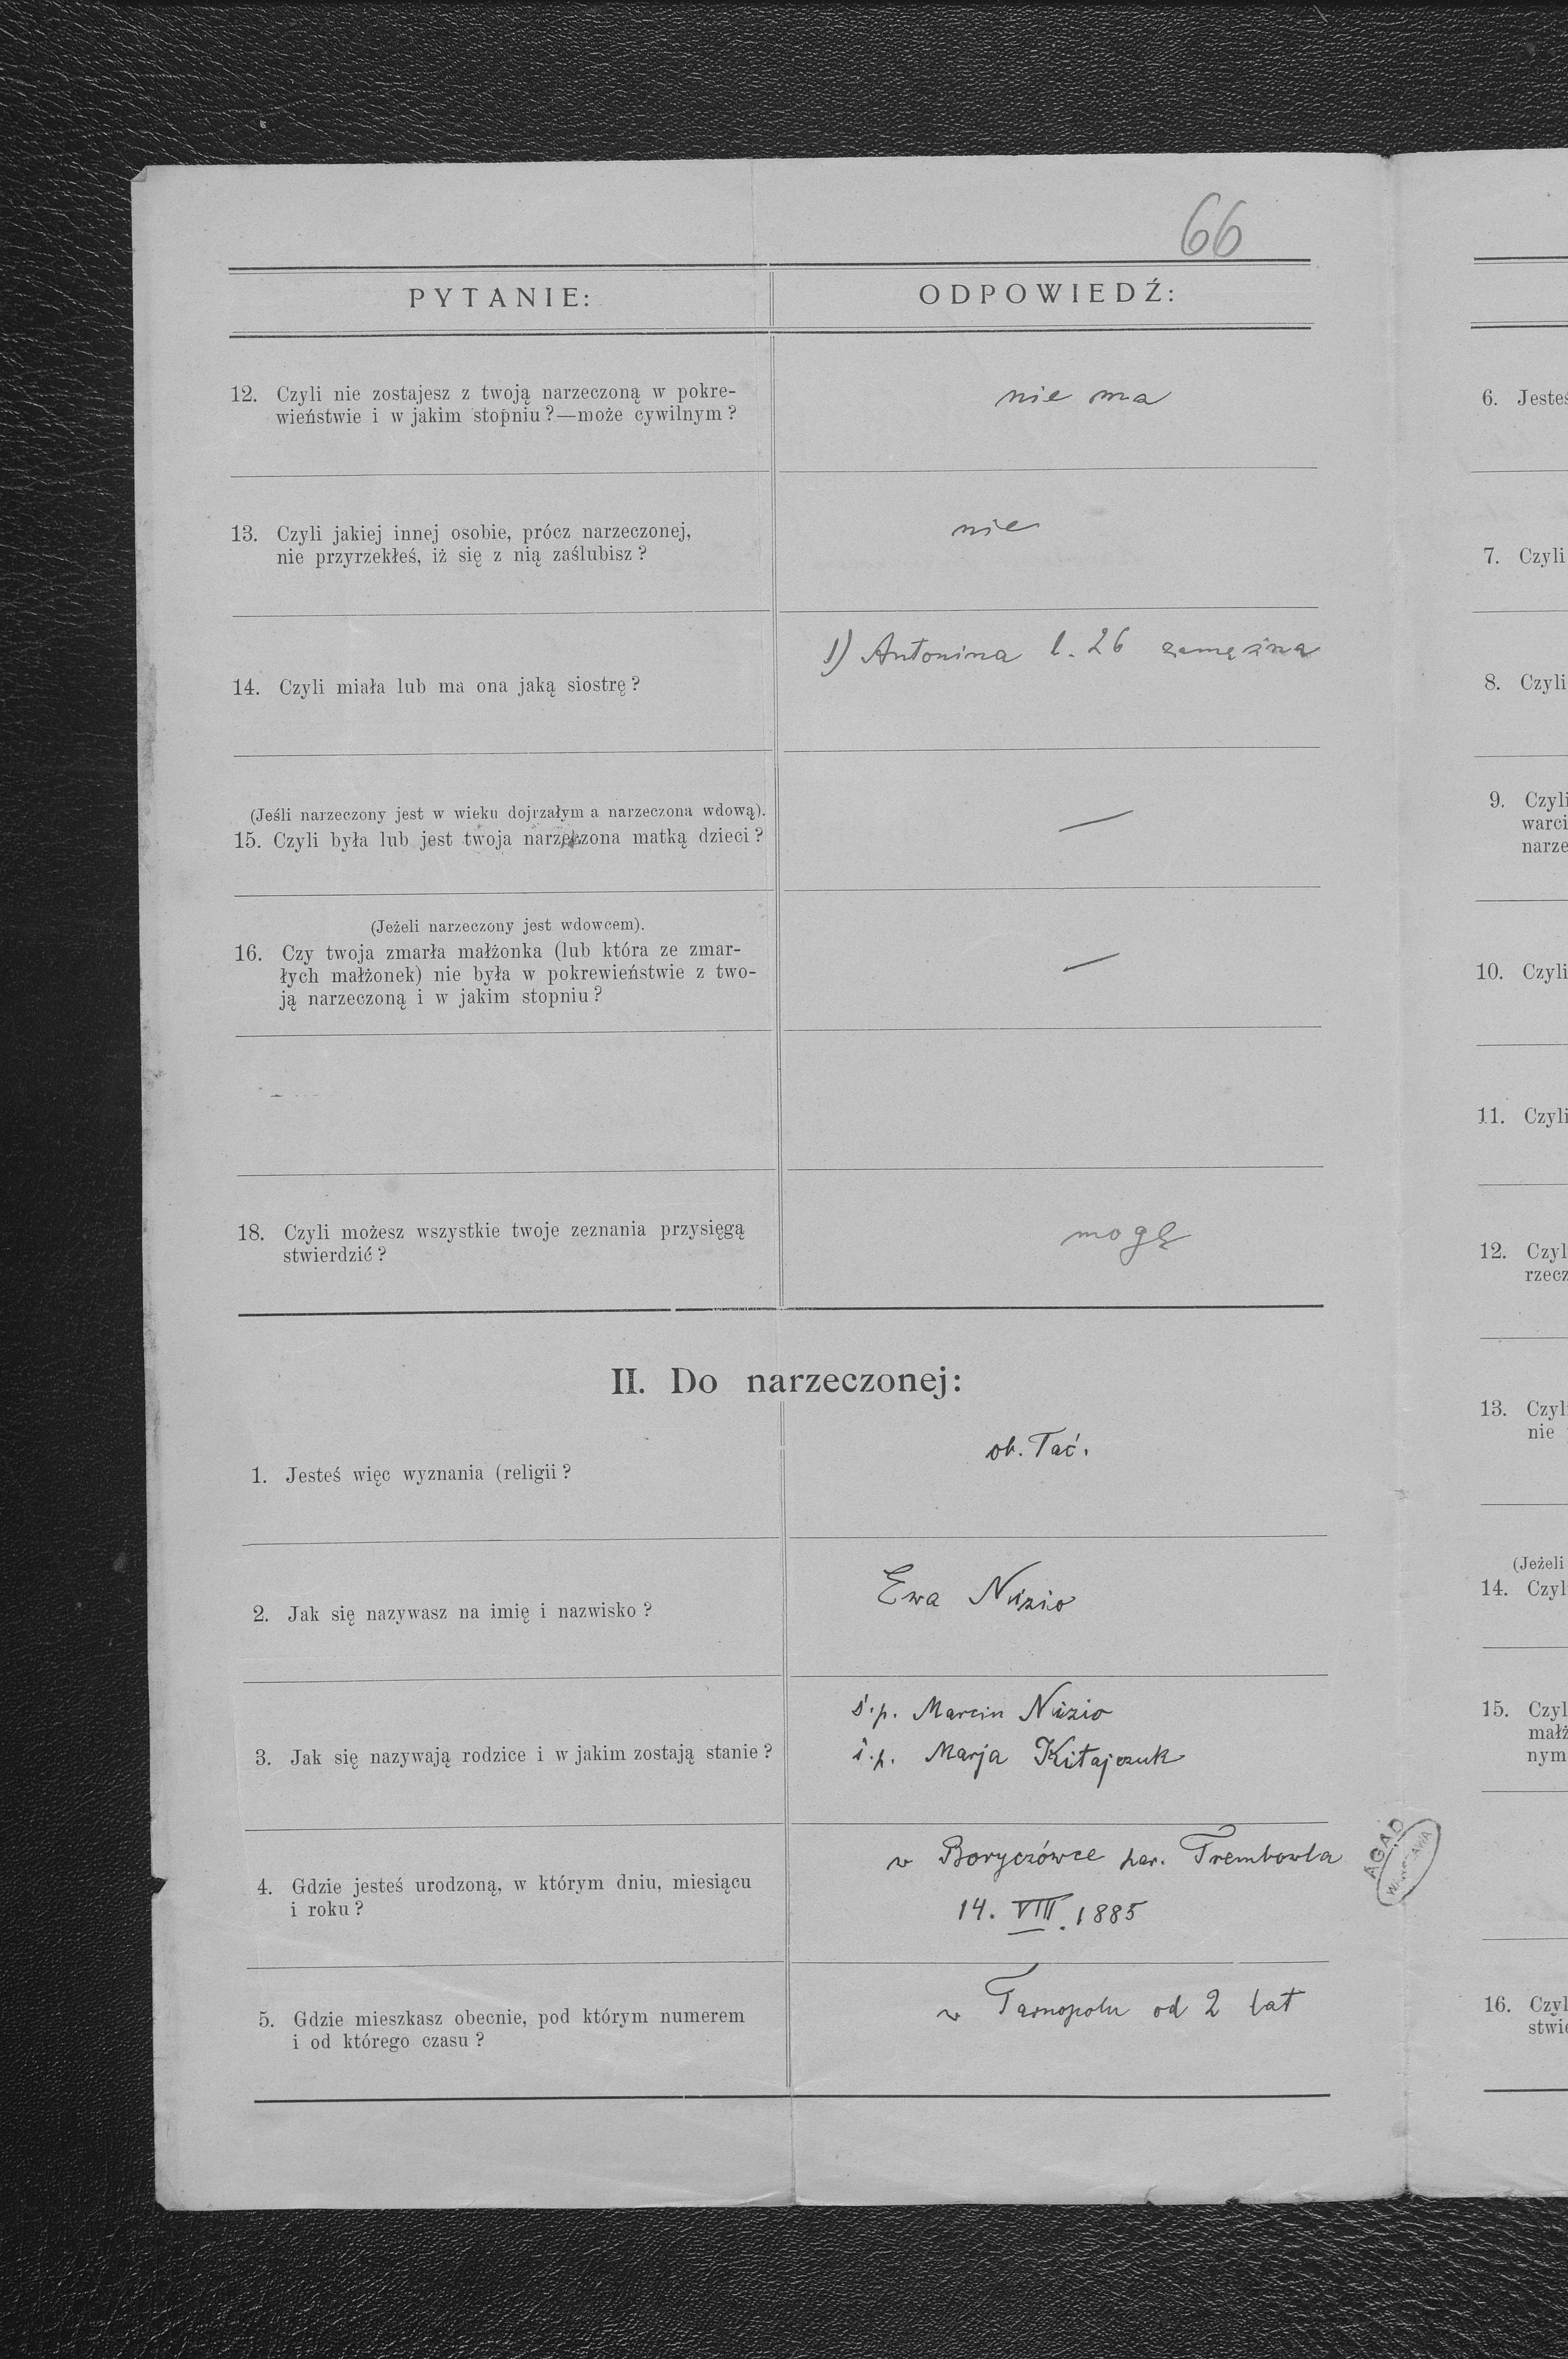 66
PYTANIE:
ODPOWIEDŹ:
12. Czyli nie zostajesz z twoją narzeczoną w pokre-
wieństwie i w jakim stopniu?—może cywilnym?
nie ma
13. Czyli jakiej innej osobie, prócz narzeczonej,
nie przyrzekłeś, iż się z nią zaślubisz?
nie
14. Czyli miała lub ma ona jaką siostrę?
1) Antonina l. 26 zamężna
(Jeśli narzeczony jest w wieku dojrzałym a narzeczona wdową).
15. Czyli była lub jest twoja narzeczona matką dzieci?
—
(Jeżeli narzeczony jest wdowcem).
16. Czy twoja zmarła małżonka (lub która ze zmar-
łych małżonek) nie była w pokrewieństwie z two-
ją narzeczoną i w jakim stopniu?
—
18. Czyli możesz wszystkie twoje zeznania przysięgą
stwierdzić?
mogę
II. Do narzeczonej:
1. Jesteś więc wyznania (religii?
ob. łać.
2. Jak się nazywasz na imię i nazwisko?
Ewa Nuzio
3. Jak się nazywają rodzice i w jakim zostają stanie?
ś.p. Marcin Nuzio
ś.p. Marja Kitajczuk
4. Gdzie jesteś urodzoną, w którym dniu, miesiącu
i roku?
w Boryczówce par. Trembowla
14. VIII. 1885
5. Gdzie mieszkasz obecnie, pod którym numerem
i od którego czasu?
w Tarnopolu od 2 lat
AGAD
WARSZAWA
6. Jesteś
7. Czyli
8. Czyli
9. Czyli
warci
narze
10. Czyli
11. Czyli
12. Czyl
rzecz
13. Czyl
nie
(Jeżeli
14. Czyl
15. Czyl
małż
nym
16. Czyl
stwie